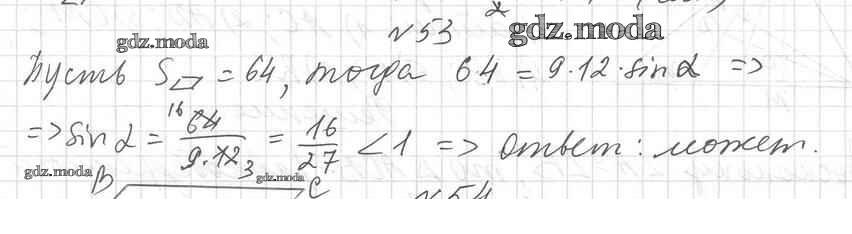 №53
gdz.moda
gdz.moda
Пусть S▱ = 64, тогда 64 = 9·12·sin α =>
=> sin α = 64/9·12 = 16/27 < 1 => ответ: может.
16
3
gdz.moda
gdz.moda
B C
№54